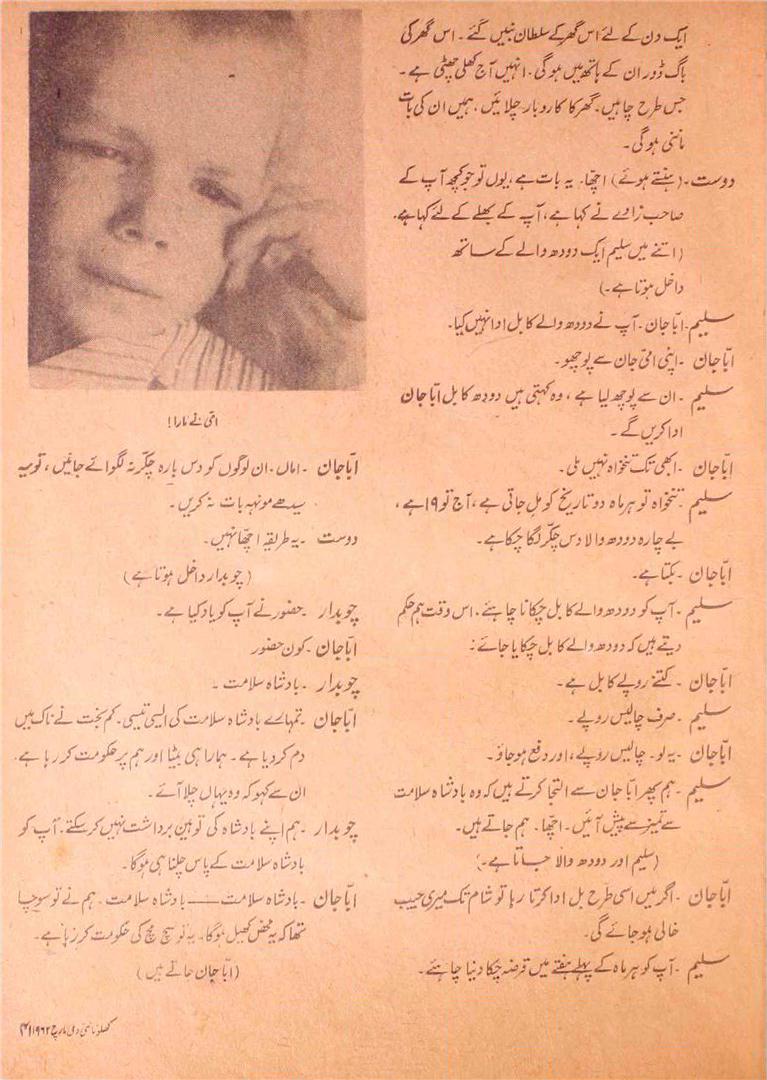 ایک دن کے لئے اس گھر کے سلطان بنیں گئے ۔ اس گھر کی
باگ ڈور ان کے ہاتھ میں ہوگی ۔ انہیں آج کھلی چھٹی ہے ۔
جس طرح چاہیں ۔ گھر کا کاروبار چلائیں ۔ ہمیں ان کی بات
ماننی ہوگی ۔
دوست ۔ (ہنستے ہوئے) اچھا ۔ یہ بات ہے ، یوں تو جو کچھ آپ کے
صاحب زادے نے کہا ہے ، آپ کے بھلے کے لئے کہا ہے ۔
(اتنے میں سلیم ایک دودھ والے کے ساتھ
داخل ہوتا ہے ۔)
سلیم ۔ ابّا جان ۔ آپ نے دودھ والے کا بل ادا نہیں کیا ۔
ابّا جان ۔ اپنی امّی جان سے پوچھو ۔
سلیم ۔ ان سے پوچھ لیا ہے ، وہ کہتی ہیں دودھ کا بل ابّا جان
ادا کریں گے ۔
ابّا جان ۔ ابھی تک تنخواہ نہیں ملی ۔
سلیم ۔ تنخواہ تو ہر ماہ دو تاریخ کو مل جاتی ہے ، آج تو ۱۹ ہے ،
بے چارہ دودھ والا دس چکّر لگا چکا ہے ۔
ابّا جان ۔ بکتا ہے ۔
سلیم ۔ آپ کو دودھ والے کا بل چکانا چاہئے ۔ اس وقت ہم حکم
دیتے ہیں کہ دودھ والے کا بل چکایا جائے ؛
ابّا جان ۔ کتنے روپے کا بل ہے ۔
سلیم ۔ صرف چالیس روپے ۔
ابّا جان ۔ یہ لو ۔ چالیس روپے ، اور دفع ہو جاؤ ۔
سلیم ۔ ہم پھر ابّا جان سے التجا کرتے ہیں کہ وہ بادشاہ سلامت
سے تمیز سے پیش آئیں ۔ اچھا ۔ ہم جاتے ہیں ۔
(سلیم اور دودھ والا جاتا ہے ۔)
ابّا جان ۔ اگر میں اسی طرح بل ادا کرتا رہا تو شام تک میری جیب
خالی ہو جائے گی ۔
سلیم ۔ آپ کو ہر ماہ کے پہلے ہفتے میں قرضہ چکا دینا چاہئے ۔
امّی نے مارا !
ابّا جان ۔ اماں ۔ ان لوگوں کو دس بارہ چکّر نہ لگوائے جائیں ، تو یہ
سیدھے مونہہ بات نہ کریں ۔
دوست ۔ یہ طریقہ اچّھا نہیں ۔
(چوبدار داخل ہوتا ہے)
چوبدار ۔ حضور نے آپ کو یاد کیا ہے ۔
ابّا جان ۔ کون حضور
چوبدار ۔ بادشاہ سلامت ۔
ابّا جان ۔ تمہارے بادشاہ سلامت کی ایسی تیسی ۔ کم بخت نے ناک میں
دم کر دیا ہے ۔ ہمارا ہی بیٹا اور ہم پر حکومت کر رہا ہے ۔
ان سے کہو کہ وہ یہاں چلا آئے ۔
چوبدار ۔ ہم اپنے بادشاہ کی توہین برداشت نہیں کر سکتے ۔ آپ کو
بادشاہ سلامت کے پاس چلنا ہی ہوگا ۔
ابّا جان ۔ بادشاہ سلامت —— بادشاہ سلامت ۔ ہم نے تو سوچا
تھا کہ یہ محض کھیل ہوگا ۔ یہ تو سچ مچ کی حکومت کر رہا ہے ۔
(ابّا جان جاتے ہیں)
کھلونا نئی دہلی مارچ ۱۹۶۲